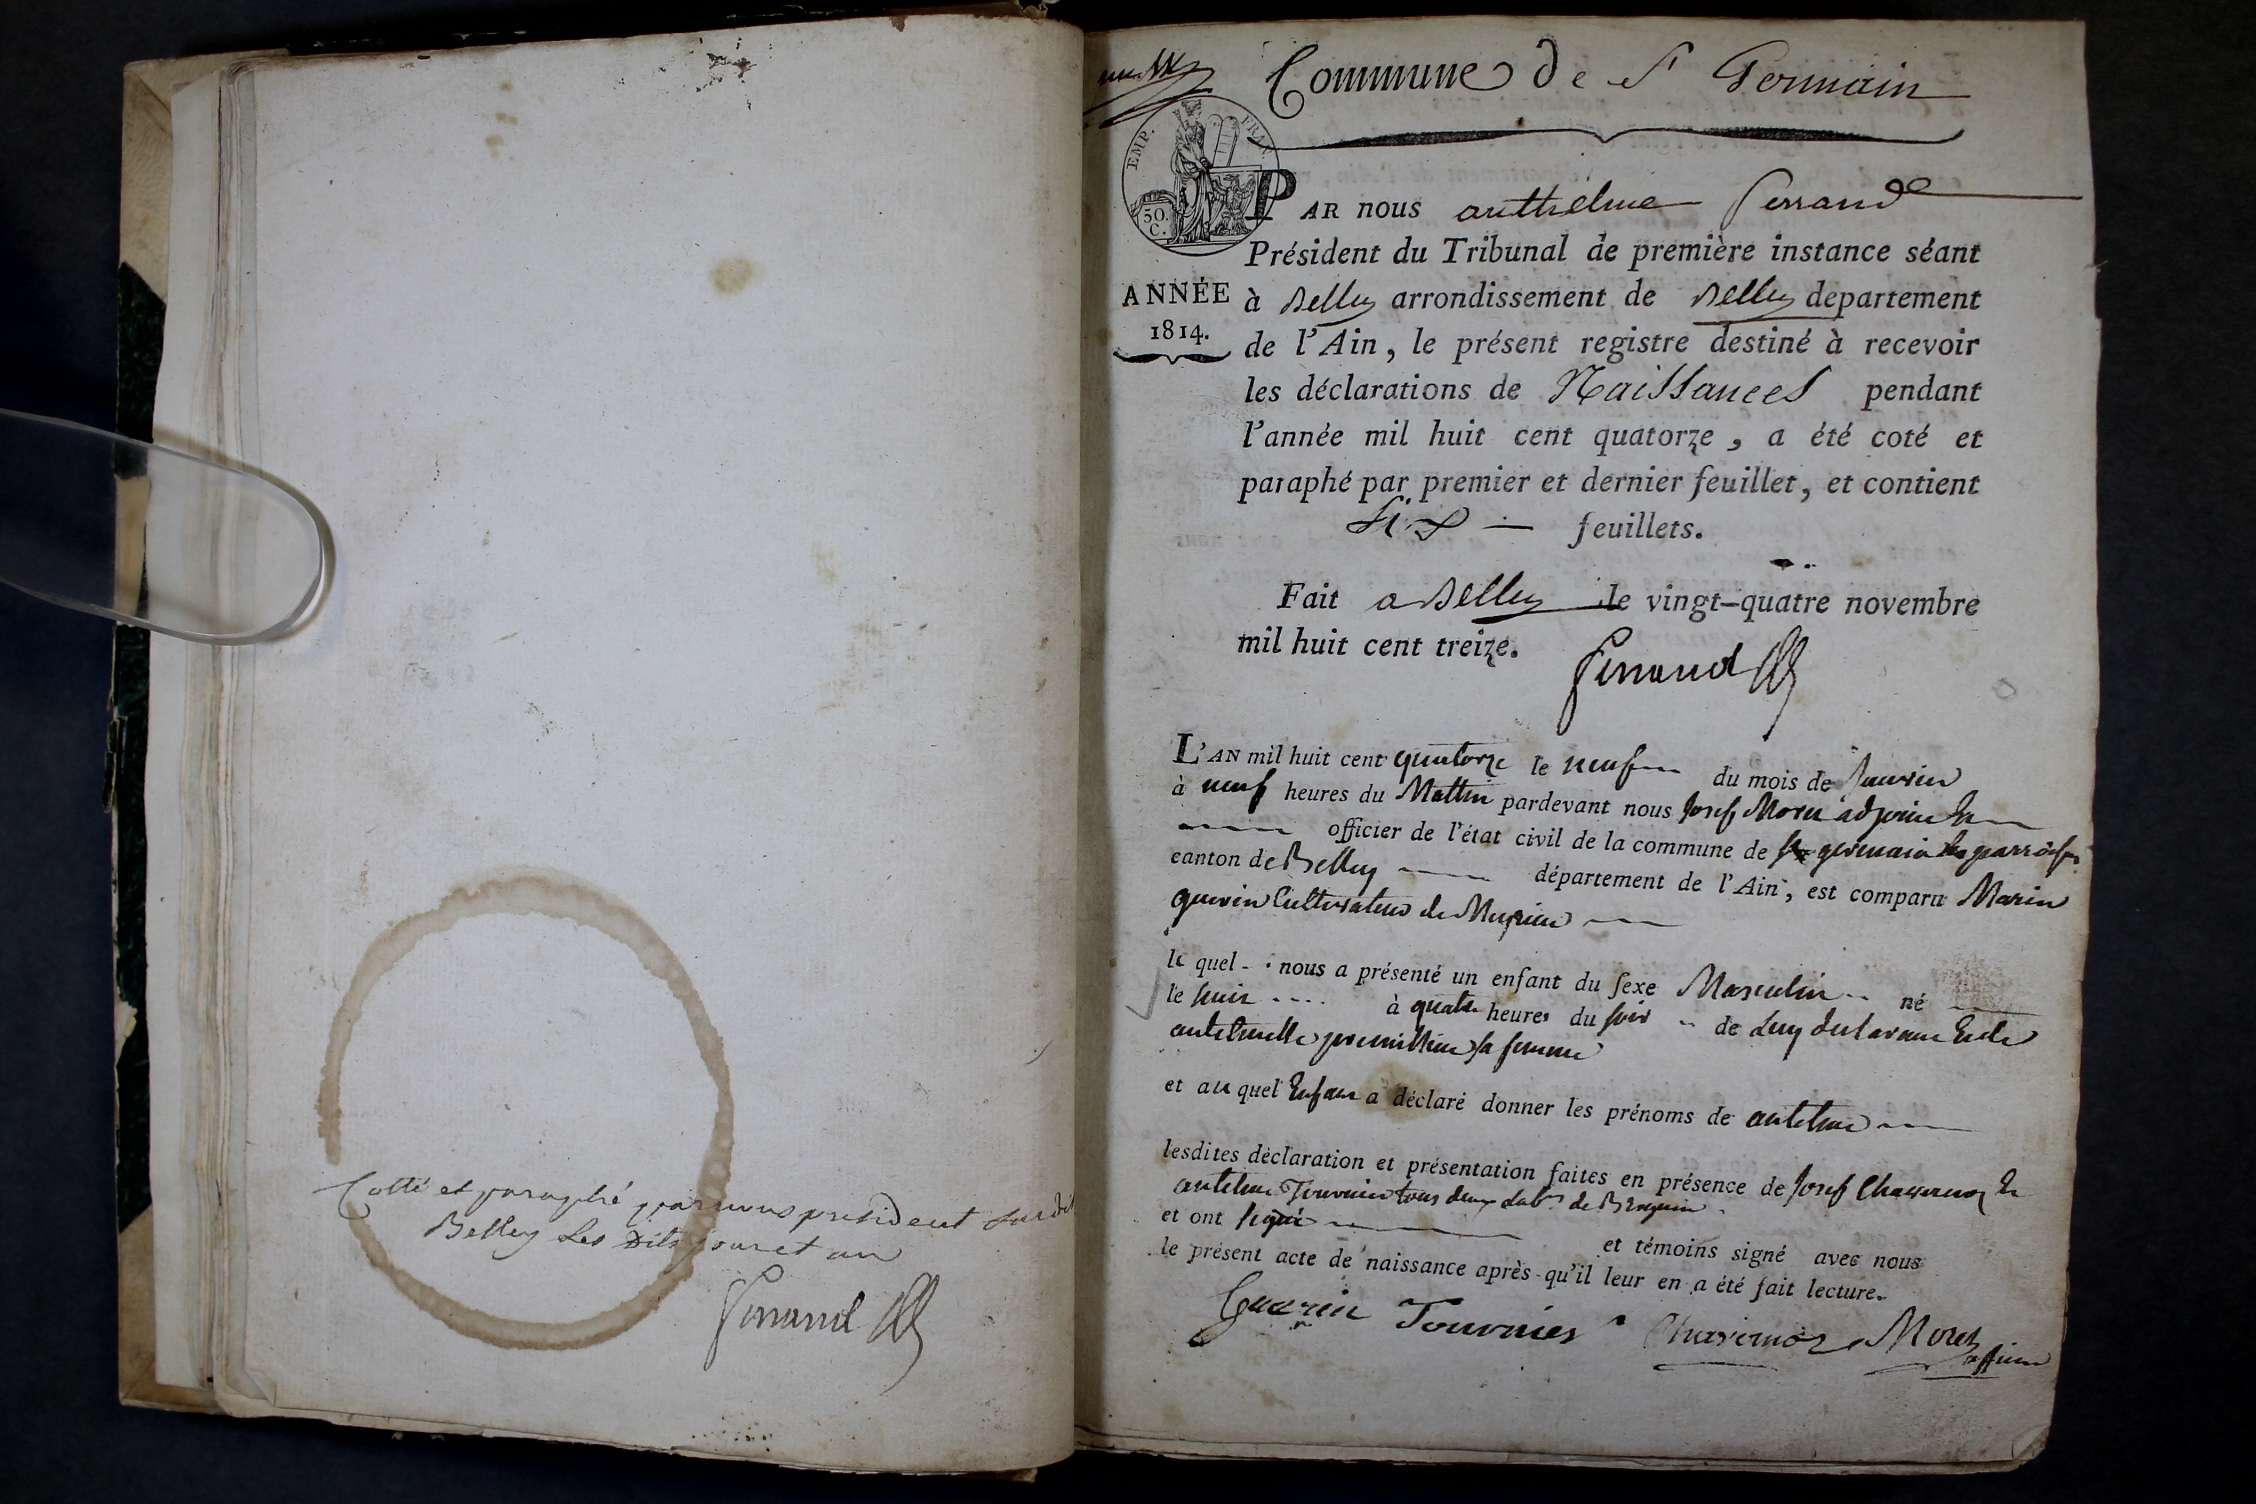 Cotté et paraphé par nous president susdit
Belley les dits jour et an
Ferrand
Commune de St Germain
EMP. FRAN.
30.
C.
PAR nous anthelme Ferrand
Président du Tribunal de première instance séant
ANNÉE
1814.
à Belley arrondissement de Belley departement
de l'Ain, le présent registre destiné à recevoir
les déclarations de Naissances pendant
l'année mil huit cent quatorze, a été coté et
paraphé par premier et dernier feuillet, et contient
six feuillets.
Fait a Belley le vingt-quatre novembre
mil huit cent treize.
Ferrand
L'AN mil huit cent quatorze le neuf du mois de Janvier
à neuf heures du Mattin pardevant nous Josef Moret adjoint Et
officier de l'état civil de la commune de St germain les parroisses
canton de Belley département de l'Ain, est comparu Marin
guerin Cultivateur de
le quel nous a présenté un enfant du sexe Masculin né
le huit à quatre heures du soir de Luy declarant Et de
antelmette sa femme
et au quel Enfant a déclaré donner les prénoms de antelme
lesdites déclaration et présentation faites en présence de Josef Charvernoz Et
antelme Tournier tous deux Labrs de
et ont signé et témoins signé avec nous
le présent acte de naissance après qu'il leur en a été fait lecture.
Guerin Tournier Moret